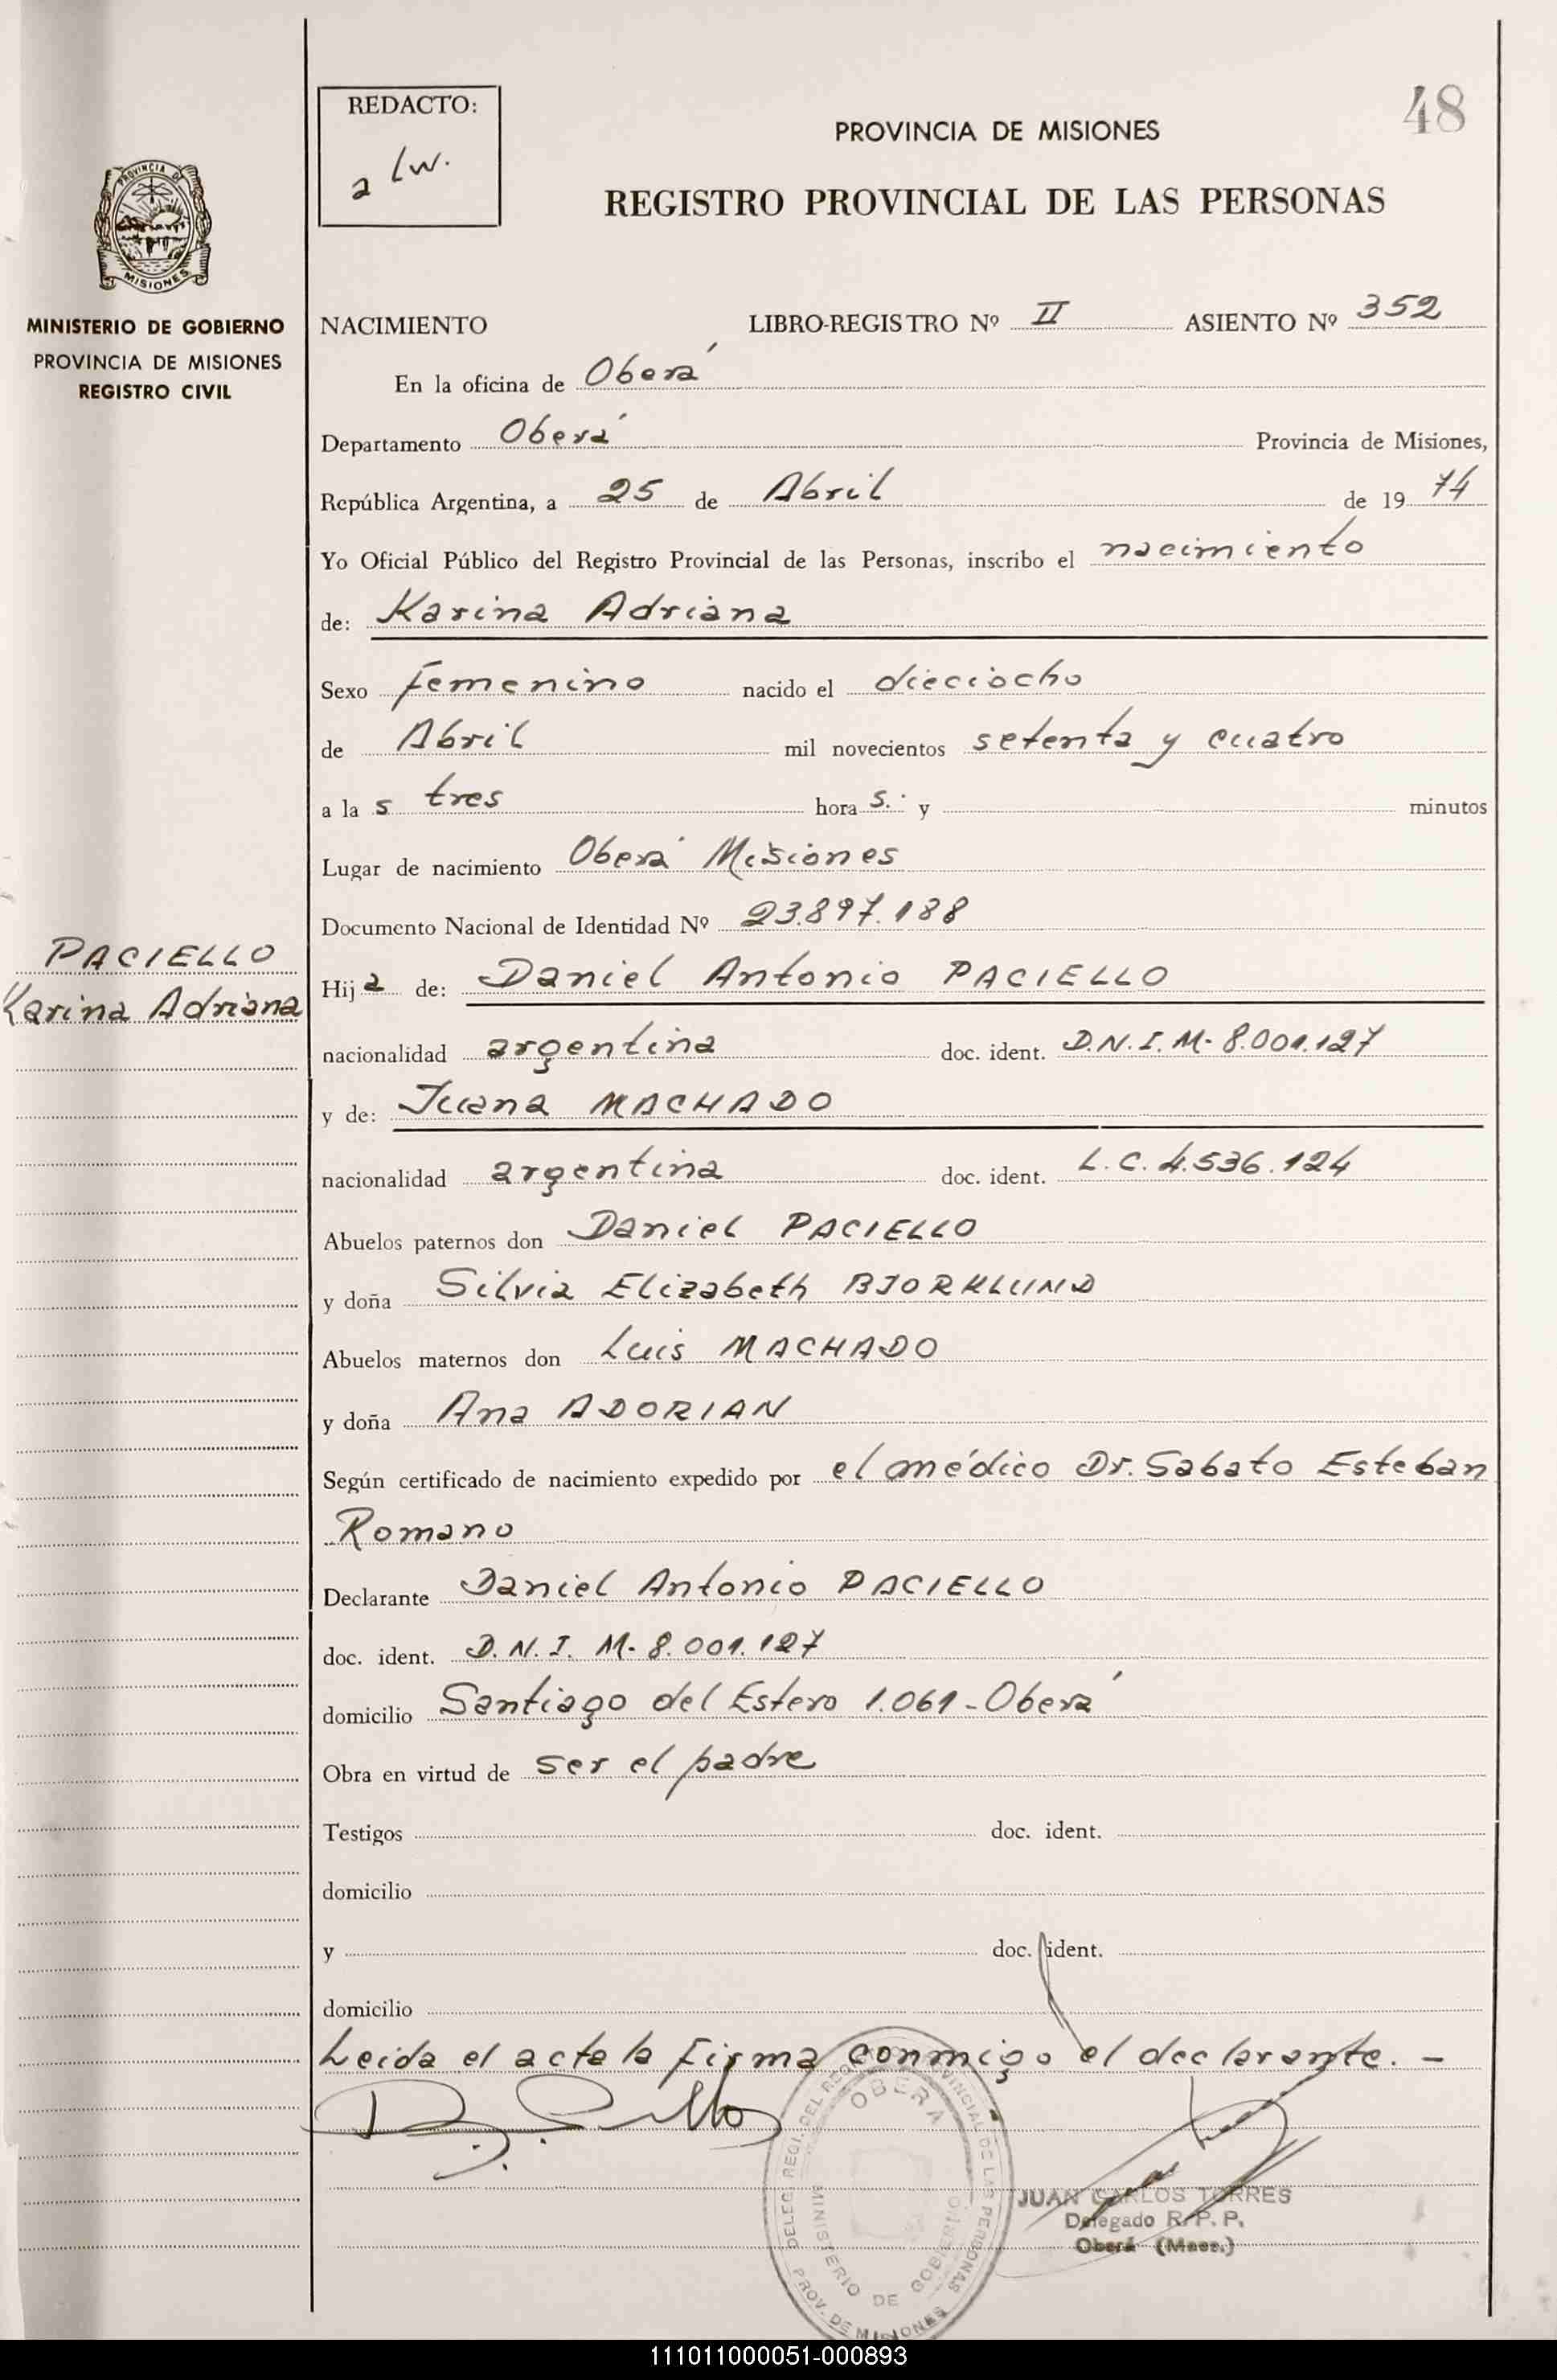 REDACTO:
a lw.
48
PROVINCIA DE MISIONES
REGISTRO PROVINCIAL DE LAS PERSONAS
PROVINCIA DE
MISIONES
MINISTERIO DE GOBIERNO
PROVINCIA DE MISIONES
REGISTRO CIVIL
NACIMIENTO LIBRO-REGISTRO Nº II ASIENTO Nº 352
En la oficina de Oberá
Departamento Oberá Provincia de Misiones,
República Argentina, a 25 de Abril de 1974
Yo Oficial Público del Registro Provincial de las Personas, inscribo el nacimiento
de: Karina Adriana
Sexo femenino nacido el dieciocho
de Abril mil novecientos setenta y cuatro
a las tres horas. y minutos
Lugar de nacimiento Oberá Misiones
Documento Nacional de Identidad Nº 23.897.188
PACIELLO
Karina Adriana
Hija de: Daniel Antonio PACIELLO
nacionalidad argentina doc. ident. D.N.I. M- 8.001.127
y de: Juana MACHADO
nacionalidad argentina doc. ident. L.C. 4.536.124
Abuelos paternos don Daniel PACIELLO
y doña Silvia Elizabeth BJORKLUND
Abuelos maternos don Luis MACHADO
y doña Ana ADORIAN
Según certificado de nacimiento expedido por el médico Dr. Sabato Esteban
Romano
Declarante Daniel Antonio PACIELLO
doc. ident. D.N.I. M- 8.001.127
domicilio Santiago del Estero 1.061 - Oberá
Obra en virtud de ser el padre
Testigos doc. ident.
domicilio
y doc. ident.
domicilio
Leida el acta la firma conmigo el declarante. -
OBERA
DELEG. REGI. DEL REGI. PROVINCIAL DE LAS PERSONAS
MINISTERIO DE GOBIERNO
PROV. DE MISIONES
JUAN CARLOS TORRES
Delegado R. P. P.
Oberá (Mnes.)
111011000051-000893